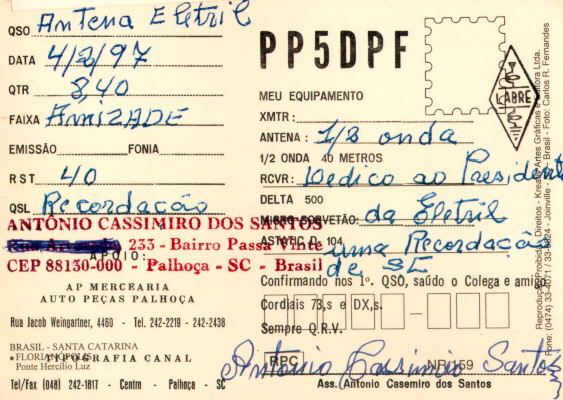 QSO Antena Eletril
DATA 4/2/97
QTR 8,40
FAIXA AmizADE
EMISSÃO FONIA
RST 40
QSL Recordação
ANTÔNIO CASSIMIRO DOS SANTOS
233 - Bairro Passa Vinte
APOIO:
CEP 88130-000 - Palhoça - SC - Brasil
AP MERCEARIA
AUTO PEÇAS PALHOÇA
Rua Jacob Weingartner, 4460 - Tel. 242-2219 - 242-2438
BRASIL - SANTA CATARINA
• FLORIANÓPOLIS
TIPOGRAFIA CANAL
Ponte Hercílio Luz
Tel/Fax (048) 242-1817 - Centro - Palhoça - SC
PP5DPF
LABRE
MEU EQUIPAMENTO
XMTR:
ANTENA: 1/2 onda
1/2 ONDA 40 METROS
RCVR: Dedico ao Presidente
DELTA 500
MICRO SORVETÃO: da Eletril
ASTATIC D. 104 uma Recordação
de SC
Confirmando nos 1º. QSO, saúdo o Colega e amigo
Cordiais 73,s e DX,s.
Sempre Q.R.V.
RPC NR 159
Antonio Cassimiro Santos
Ass. Antonio Casemiro dos Santos
Reprodução Proibida Direitos - Artes Gráficas e Editora Ltda.
Fone: (0474) 33-4071/ - Joinville - Brasil - Foto: Carlos R. Fernandes